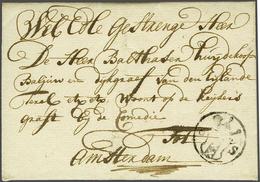 Wel Edle Gestrenge Heer
De Heer Balthasar Thuijdekoper
Baljuw en dijkgraaf van den Eijlande
Texel etc. etc. Woont op de Keijzers
graft bij de Comedie
Tot
Amsterdam